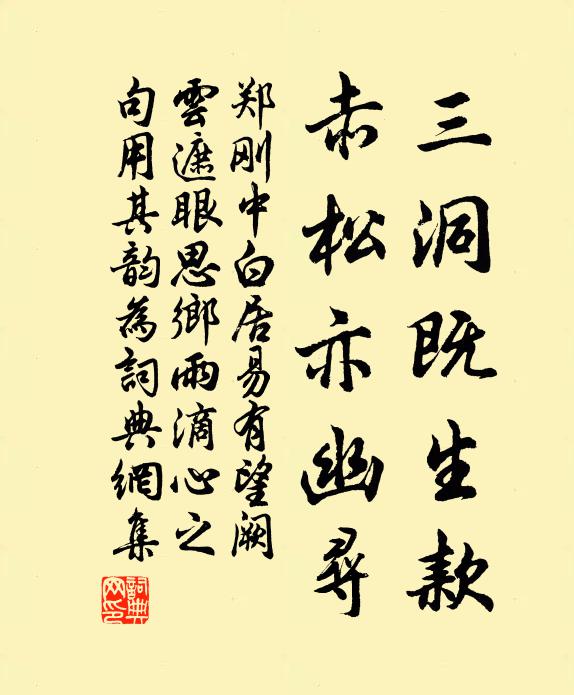 三洞既生款
赤松亦幽尋
郑刚中白居易有望阙
雲遮眼思鄉雨滴心之
句用其韵為詞典網集